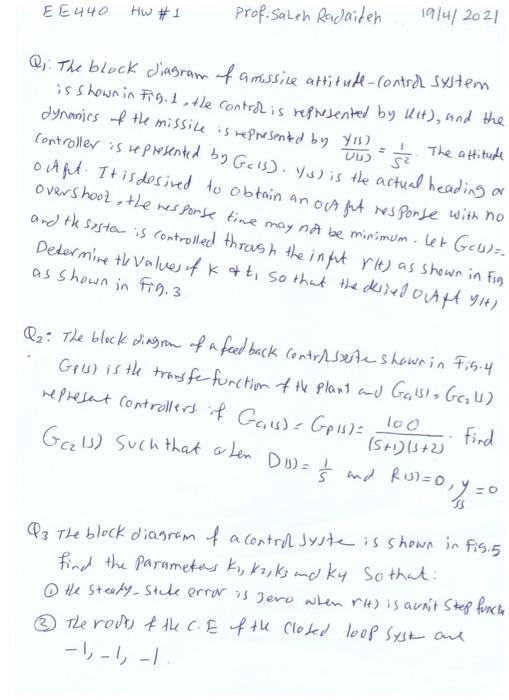 EE440 HW #1 Prof. Saleh Radaideh 19/4/2021
Q1: The block diagram of a missile attitude-control system
is shown in Fig. 1, the control is represented by U(t), and the
dynamics of the missile is represented by Y(s)/U(s) = 1/S². The attitude
controller is represented by Gc(s). Y(s) is the actual heading or
output. It is desired to obtain an output response with no
overshoot, the response time may not be minimum. let Gc(s)=
and the system is controlled through the input r(t) as shown in Fig
Determine the values of K & t1 so that the desired output y(t)
as shown in Fig. 3.
Q2: The block diagram of a feedback control syste shown in Fig.4
Gp(s) is the transfer function of the plant and Gc1(s), Gc2(s)
represent controllers if Gc1(s) = Gp(s) = 100/(S+1)(S+2). Find
Gc2(s) such that when D(s) = 1/S and R(s)=0, yss=0
Q3 The block diagram of a control syste is shown in Fig.5
find the parameters K1, K2, K3 and K4 so that:
① the steady-state error is zero when r(t) is a unit step functi
② The roots of the C.E of the closed loop syst are
-1, -1, -1.